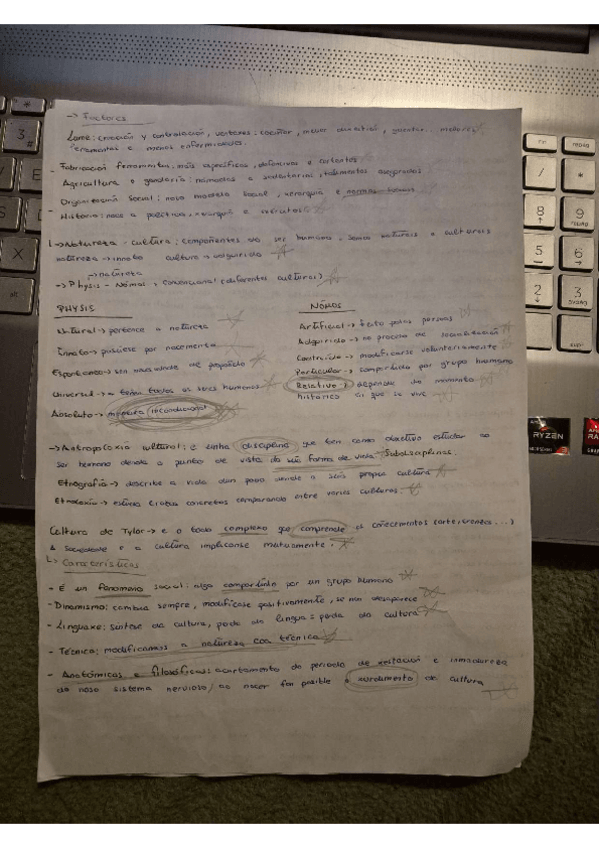 -> Factores
Lume: creación y controlación, cociñar, mellor dixestión,
ferramentas e menos enfermidades.
- Fabricación ferramentas, máis específicas, defensivas e cortantes
- Agricultura e gandaría: nómadas a sedentarios, alimentos asegurados
- Organización Social: novo modelo social, xerarquía e normas sociais
- Historia:
Natureza - cultura: compoñentes do ser humano, somos naturais e culturais
natureza -> innato cultura -> adquirido
-> natureza
-> Physis - Nómos: convencional (diferentes culturas)
PHYSIS
Natural -> pertence a natureza
Innato -> puséese por nacemento
Espontáneo -> sen necesidade de
Universal -> o teñen todos os seres humanos
Absoluto -> (incondicional)
NÓMOS
Artificial -> feito polas persoas
Adquirido -> no proceso de socialización
Construído -> modificarse voluntariamente
Particular -> compartido por grupo humano
Relativo -> depende do momento
histórico q se vive
-> Antropoloxía cultural: é unha disciplina que ten como obxectivo estudar ao
ser humano dende o punto de vista da súa forma de vida. Subdisciplinas:
Etnografía -> describe a vida dun pobo dende a súa propia cultura
Etnoloxía -> estuda trazos concretos comparando entre varias culturas.
Cultura de Tylor -> é o todo complexo que comprende os coñecementos (arte, crenzas...)
A sociedade e a cultura implícanse mutuamente.
Características
- É un fenómeno social: algo compartido por un grupo humano
- Dinamismo: cambia sempre, modifícase positivamente, se non desaparece
- Linguaxe: sustese da cultura, perda da lingua = perda da cultura
- Técnica: modificamos a natureza coa técnica
- Anatómicas e filosóficas: acurtamento do período de xestación e inmadureza
do noso sistema nervioso/ ao nacer fai posible o xurdimento da cultura
RYZEN